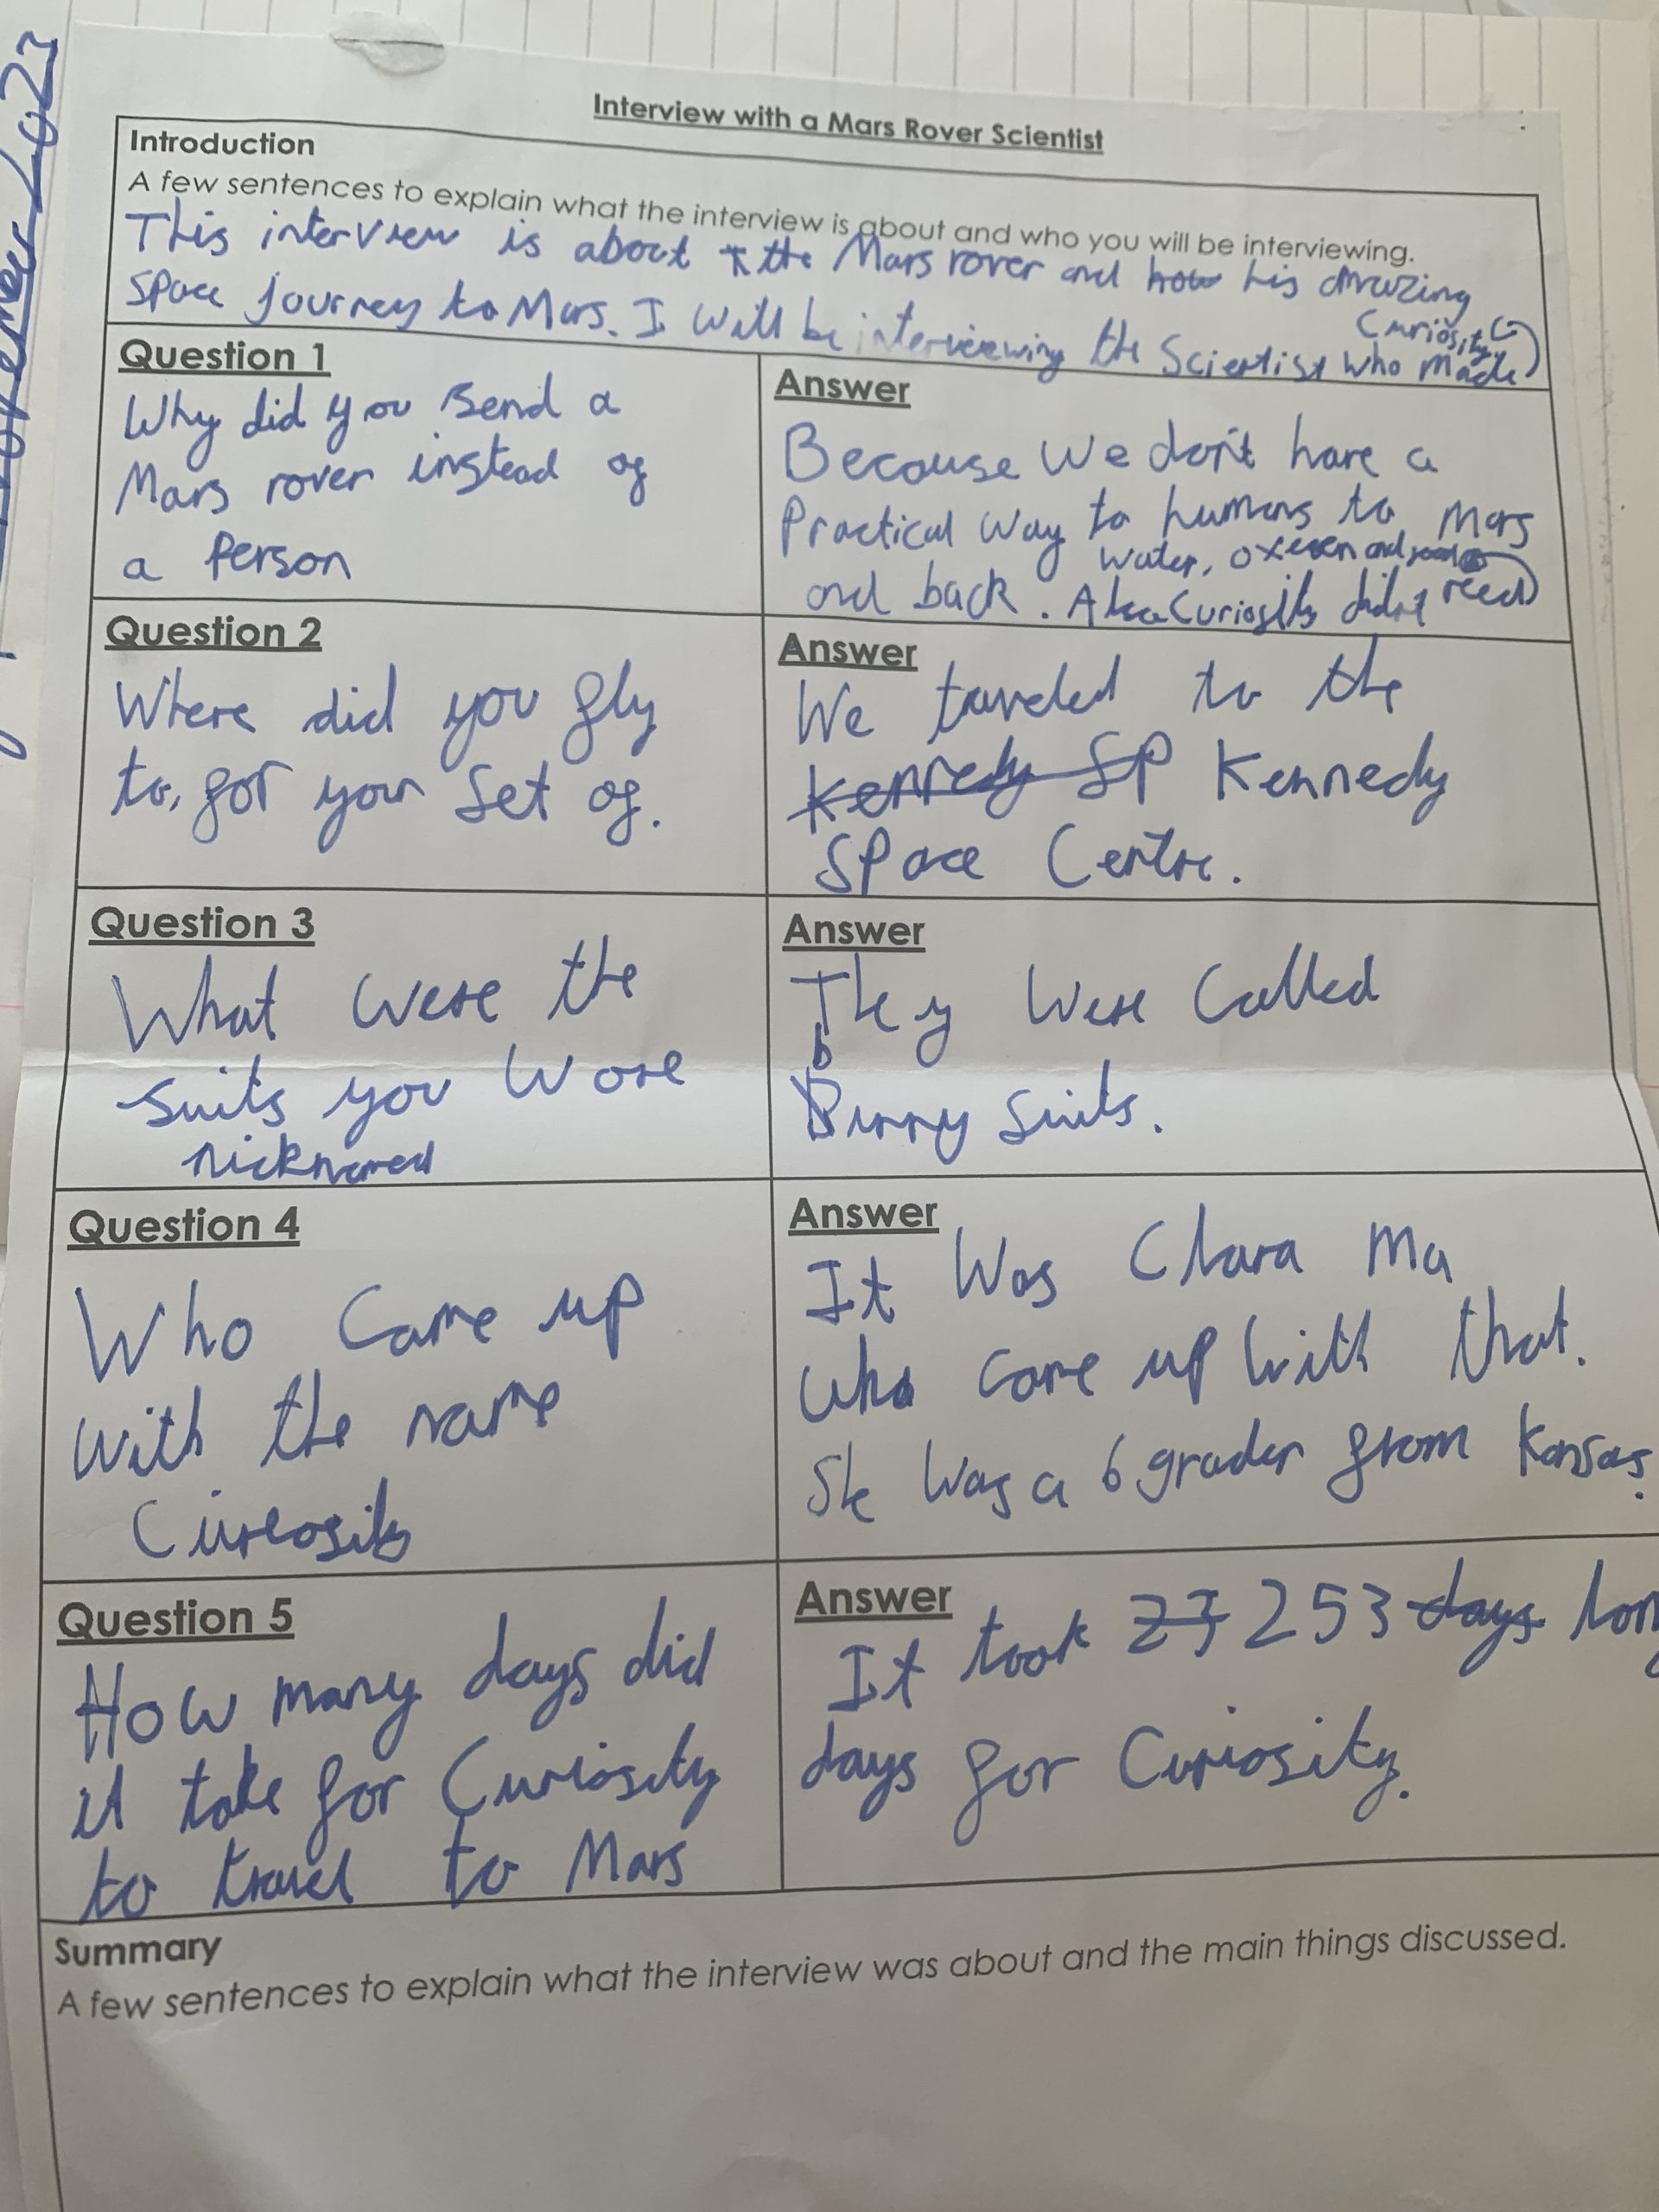 November 2023
Interview with a Mars Rover Scientist
Introduction
A few sentences to explain what the interview is about and who you will be interviewing.
This interview is about the Mars rover and his amazing
space journey to Mars. I will be interviewing the Scientist who made
Curiosity.
Question 1
Why did you send a
Mars rover instead of
a Person
Answer
Because we don't have a
Practical way to humans to Mars
and back. Also Curiosity didn't need
water, oxegen and food
Question 2
Where did you fly
to, for your set of.
Answer
We traveled to the
Kennedy SP Kennedy
Space Centre.
Question 3
What were the
suits you wore
nicknamed
Answer
They were called
bunny suits.
Question 4
Who came up
with the name
Cureosity
Answer
It was Clara Ma
who came up with that.
She was a 6 grader from Kansas.
Question 5
How many days did
it take for Curiosity
to travel to Mars
Answer
It took 253 days lon
days for Curiosity.
Summary
A few sentences to explain what the interview was about and the main things discussed.